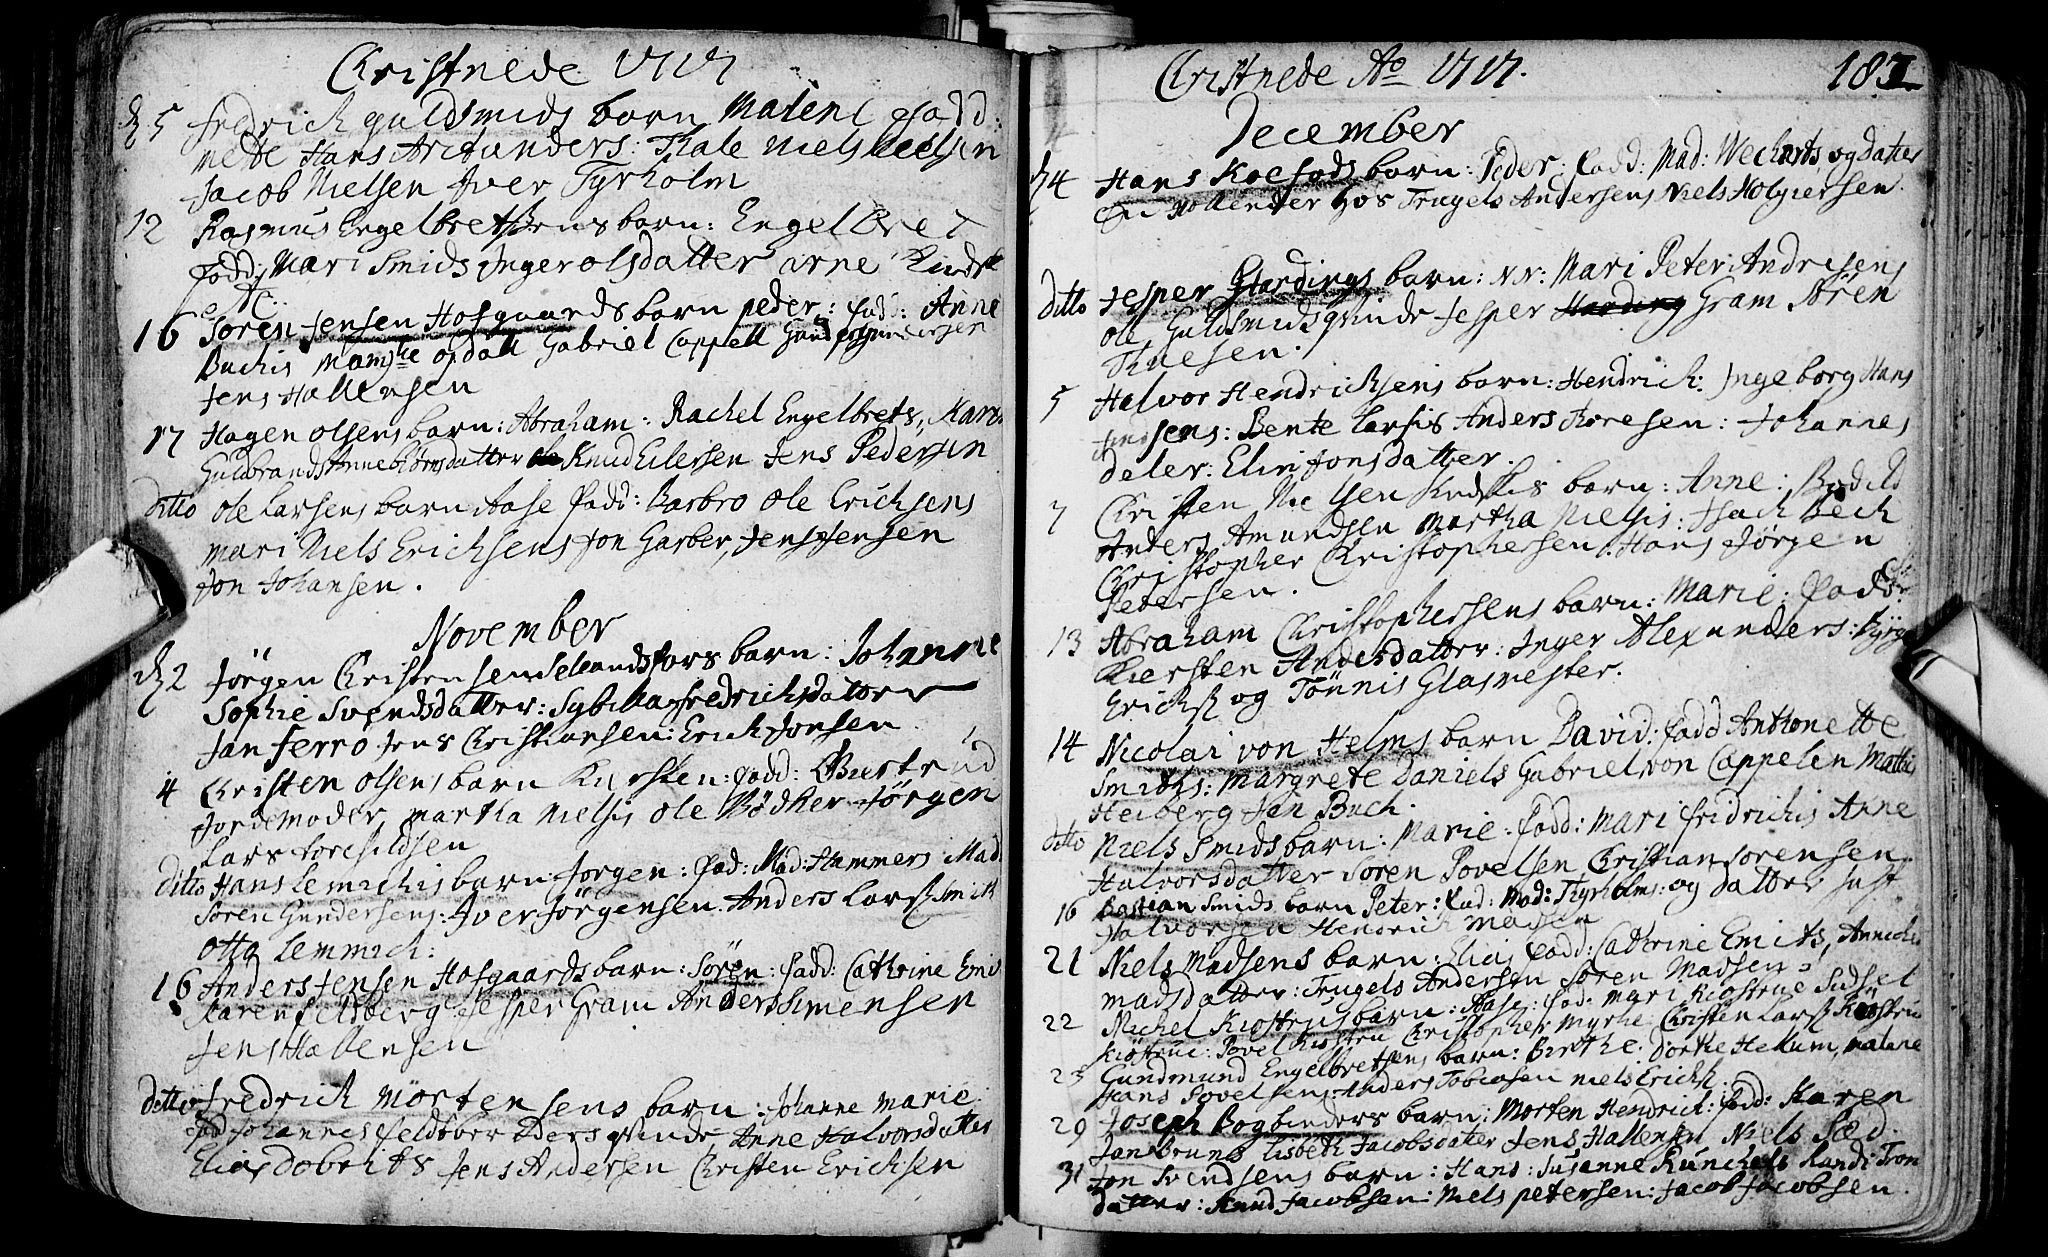 Christnede 1717
d 5 fredrich guldsmids barn Malene fadd:
mette Hans Thale Niels Neelsen
Jacob Nielsen Iver Tyrholm
12 Rasmus Engelbretsens barn: Engelbret
fadd: Mari Smids Inger olsdatter arne
16 Søren Jensen Hofgaards barn peder: fadd: Anne
Buchis opdall Gabriel Cappell
Jens Hallensen
17 Hagen olsens barn: Abraham: Rachel Engelbrets, Karen
Guldbrands Anne biørnsdatter Knud Eilersen Jens Pedersen
ditto ole Larsens barn Aase fadd: Barbro ole Erichsens
mari Niels Erichsens Jon Garber, Jens Jensen
Jon Johansen.
November
d 2 Jørgen Christensen barn: Johanne
Sophie Svendsdatter: Sybilla fredrichsdatter
Jan ferro Jens Christiansen: Erich Jonsen
4 Christen olsens barn Kiersten: fadd:
Jordemoder, martha Nielsis ole Bødker Jørgen
Lars torchildsen
Ditto Hans Lemichis barn Jørgen: fad: Mad: Hammers Mad
Søren Gundersens: Iver Jørgensen. Anders Lars Smidt
Otto Lemmich:
16 Anders Jensen Hofgaards barn: Søren: fadd: Cathrine Emis
Karen feldberg Jesper Gram Anders Simensen
Jens Hallensen
ditto fredrich Mortensens barn: Johanne marie
fad Johannes qvinde Anne Halvorsdatter
Elias dobrits Jens Andersen Christen Erichsen
Christnede Ao 1717. 181
December
d 4 Hans Koefods barn: Peder: fadd: Mad: Wecharts og datter
En Hollender hos Trugels Andersens Niels Holgiersen.
ditto Jesper Hardings barn: NN: Mari Peter Andresens
ole Guldsmids qvinde Jesper Gram Søren
Thuesen.
5 Halvor Hendrichsens barn: Hendrich: Ingeborg Hans
sens: Bente Larsis Anders thoresen: Johannes
deler: Elin Jonsdatter.
7 Christen Nielsen barn: Anne: Bodild
Anders Amundsen Martha Nielsis: Isach Bech
Christopher Christophersen: Hans Jørgen
Petersen.
13 Abraham Christophersens barn: Marie: fadd:
Kiersten Andersdatter: Inger Alexanders:
Erichs og Tønnis Glasmester.
14 Nicolai von Helms barn David: fadd Anthonette
Smiths: Margrete Daniels Gabriel von Cappelen Mathis
Heiberg Jan Buch.
ditto Niels Smids barn: Marie: fadd: Mari fridrichis Anne
Halvorsdatter Søren Povelsen Christian Sørensen.
16 bastian Smids barn Peter: fad: Mad: Thyrholms: og datter Just
Halvorsen Hendrich Madsen
21 Niels Madsens barn: Elias fadd: Cathrine Emits, Anniche
madsdatter: Trugels Andersen Søren Madsen:
22 Michel Kiøstruis barn: Aase: fad: mari Kiøstrue Sidsel
Kiøstrue: Povel Kiøsten Christopher Myrhe Christen Lars Kiøstrue
23 Gundmund Engelbretsens barn: Birthe: Dorthe Hekum, malene
Hans Povelsens: Anders Tobiasen Niels Erichs.
29 Joseph Bogbinders barn: Morten Hendrich: fadd: Karen
Jan bruns Lisbeth Jacobsdatter Jens Hallensen Niels Sæd.
31 Jon Svendsens barn: Hans: Susanne Runchels Randi Tron
datter: Knud Jacobsen: Niels petersen: Jacob Jacobsen.